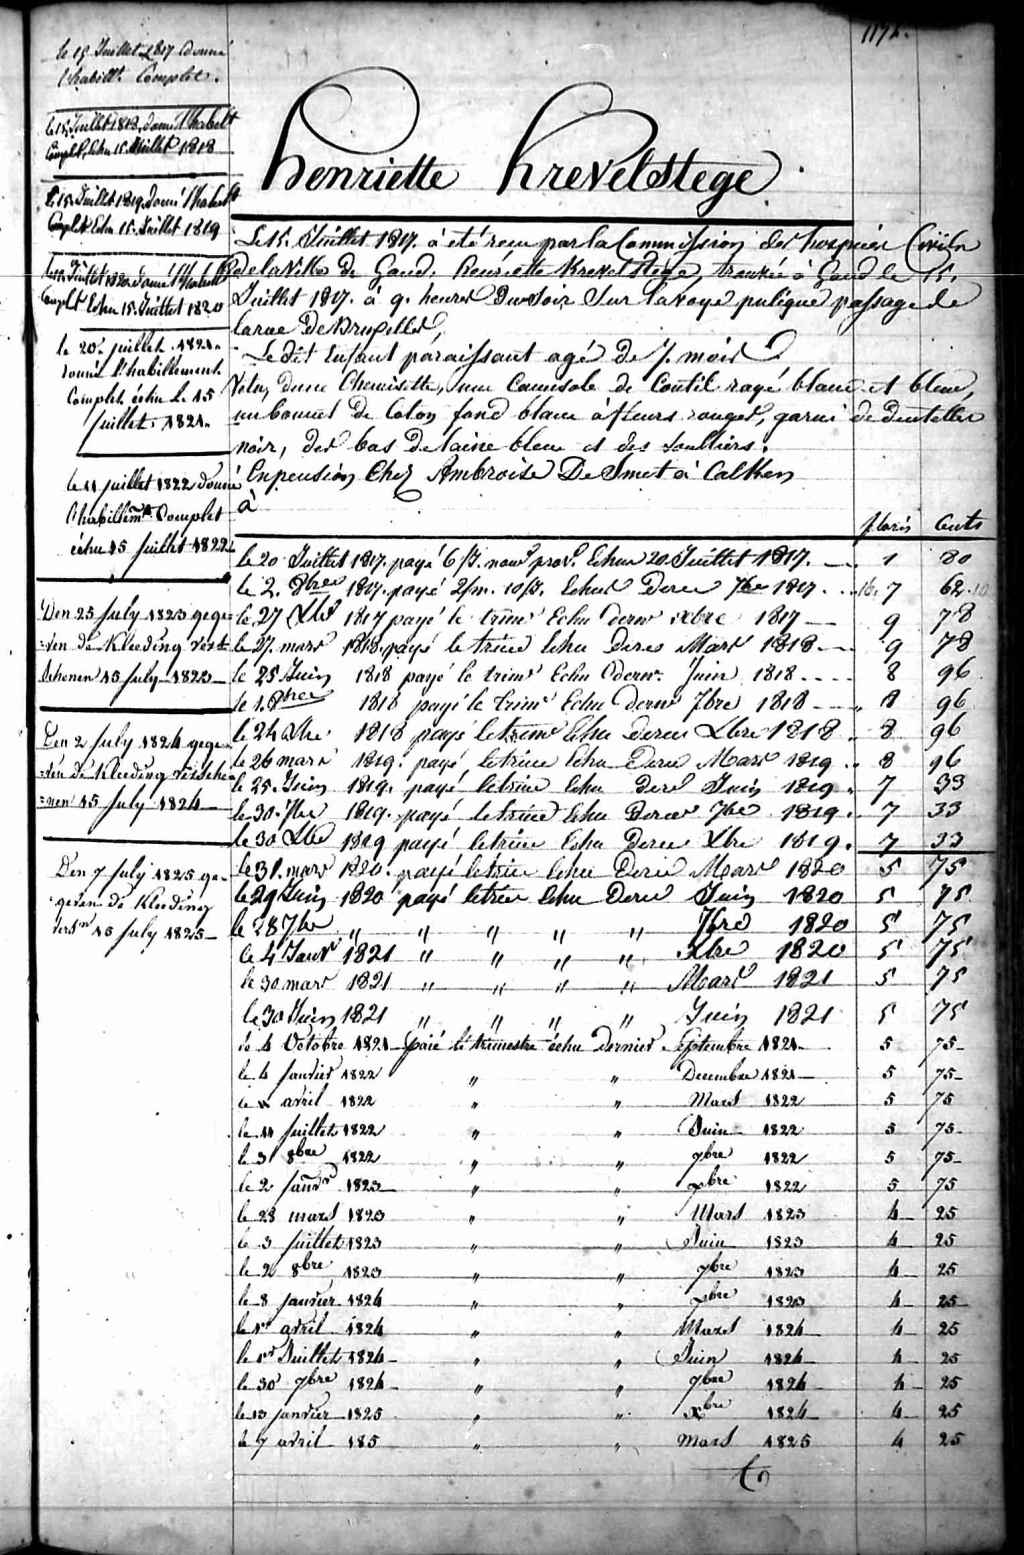 1172.
le 15 Juillet 1817 donné
l'habillt. Complet.
le 15 Juillet 1818, donné l'habilt
Complet, Echu 15 Juillet 1818
le 15 Juillet 1819 donné l'habilt
Complet Echu 15 Juillet 1819
le 15 Juillet 1820 donné l'habilt
Complet Echu 15 Juillet 1820
le 20 juillet 1821
donné l'habillement
Complet échu le 15
juillet 1821
le 11 juillet 1822 donné
l'habillemt Complet
échu 15 juillet 1822
Den 25 July 1823 gege-
=ven de Kleeding versc
schenen 15 July 1823
Den 2 July 1824 gege-
=ven de Kleeding verssche
=nen 15 July 1824
Den 7 July 1825 ge-
geven de Kleeding
versn 15 July 1825
Henriette Krevelstege.
Le 15. Juillet 1817. à été recu par la Commission des hospices Civils
de la Ville de Gand, Henriette Krevelstege, trouvée à Gand le 15.
Juillet 1817. à 9. heures du soir sur la voye publique passage de
la rue De Bruxelles,
Le dit Enfant paraissant agé de 7. mois.
Vetu, dune Chemisette, une Camisole de Coutil rayé blanc et bleu,
un bonnet de Coton fond blanc à fleurs rouges, garni de dentelles
noir, des bas de laine bleu et des soulliers.
Enpension Chez Ambroise De Smet à Calken
à
floris Cents
le 20 Juillet 1817. payé 6/S. nour prov. Echu 20. Juillet 1817. 1 80
le 2. 8bre 1817. payé 2/m. 10/S. Echus Derer 7bre 1817. 16. 7 62.10
le 27 Xbre 1817 payé le trime Echu derer xbre 1817 9 78
le 27. mars 1818 payé le trime Echu Derer Mars 1818 9 78
le 25 Juin 1818 payé le trime Echu derer Juin 1818 8 96
le 1. 8bre 1818 payé le trime Echu derer 7bre 1818 8 96
le 24 Xbre 1818 payé le trime Echu Derer Xbre 1818. 8 96
le 26 mars 1819. payé le trime Echu Derer Mars 1819 8 96
le 25. Juin 1819. payé le trime Echu Derer Juin 1819 7 33
le 30. 7bre 1819. payé le trime Echu Derer 7bre 1819. 7 33
le 30 Xbre 1819 payé le trime Echu Derer Xbre 1819. 7 33
le 31. mars 1820. payé le trime Echu Derer Mars 1820 5 75
le 29 Juin 1820 payé le trime Echu Derer Juin 1820 5 75
le 28 7bre „ „ „ „ „ 7bre 1820 5 75
le 4 Janvr 1821 „ „ „ „ Xbre 1820 5 75
le 30 mars 1821 „ „ „ „ Mars 1821 5 75
le 30 Juin 1821 „ „ „ „ Juin 1821 5 75
le 4 Octobre 1821 Payé le trimestre échu dernier Septembre 1821 5 75
le 4 janvier 1822 „ „ Decembre 1821 5 75
le avril 1822 „ „ Mars 1822 5 75
le 11 juillet 1822 „ „ Juin 1822 5 75
le 3 8bre 1822 „ „ 7bre 1822 5 75
le 2 janvr 1823 „ „ xbre 1822 5 75
le 28 mars 1823 „ „ Mars 1823 4 25
le 3 juillet 1823 „ „ Juin 1823 4 25
le 2 8bre 1823 „ „ 7bre 1823 4 25
le 8 janvier 1824 „ „ xbre 1823 4 25
le 1r avril 1824 „ „ Mars 1824 4 25
le 1r Juillet 1824 „ „ Juin 1824 4 25
le 30 7bre 1824 „ „ 7bre 1824 4 25
le 13 janvier 1825 „ „ xbre 1824 4 25
le 7 avril 185 „ „ Mars 1825 4 25